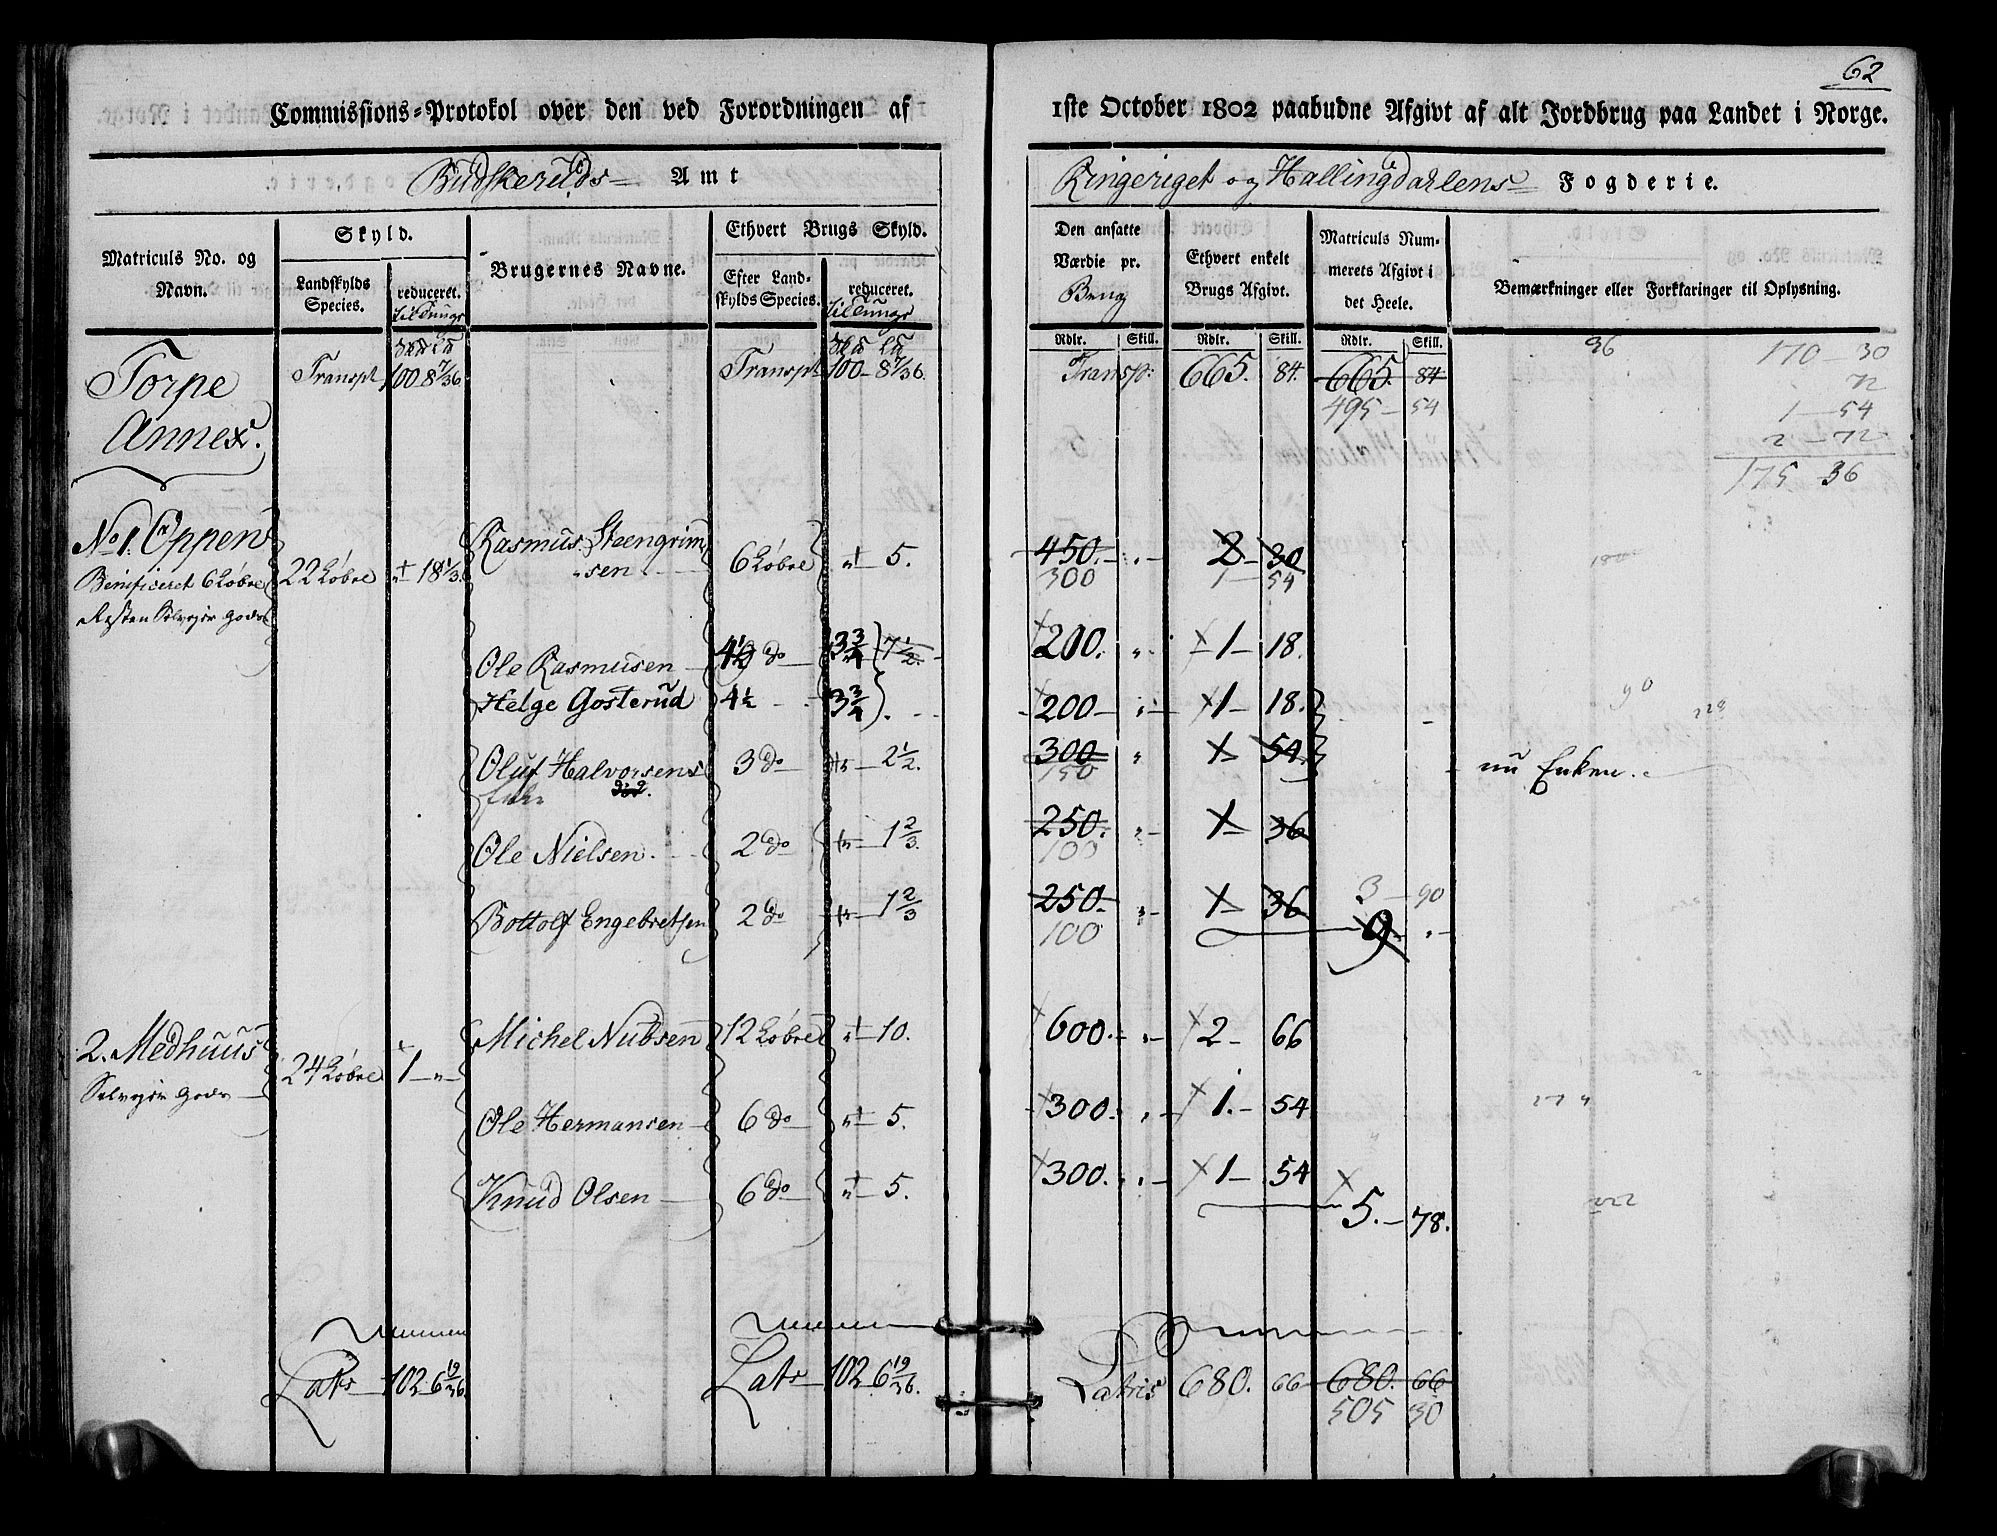 62
Commissions-Protokol over den ved Forordningen af 1ste October 1802 paabudne Afgivt af alt Jordbrug paa Landet i Norge.
Budskeruds Amt Ringeriget og Hallingdahlens Fogderie.
Matriculs No. og Navn.
Skyld.
Landskylds Species.
reduceret. til Tunge
Brugernes Navne.
Ethvert Brugs Skyld.
Efter Landskylds Species.
reduceret. til Tunge
Den ansatte Værdie pr. Brug
Ethvert enkelt Brugs Afgivt.
Matriculs Nummerets Afgivt i det Heele.
Bemærkninger eller Forklaringer til Oplysning.
Rdlr. Skill. Rdlr. Skill. Rdlr. Skill.
Torpe Annex.
Transpt 100 8 7/36. Transpt 100 - 8 7/36. Transp: 665. 84. 665. 84
495 - 54
96
170 - 30
72
1 - 54
2 - 72
175 36
No 1. Oppen
Beneficeret 6 Løbre
Resten Selveier Gods
22 Løbre 18 1/3.
Rasmus Steengrimsen 6 Løbre 5. 450. 2 - 30
300 1 - 54
Ole Rasmusen 4 1/2 do 3 3/4 7 1/2. 200. 1 - 18.
Helge Gosterud 4 1/2 3 3/4 200 1 - 18.
Oluf Halvorsens 3 do 2 1/2. 300 1 - 54 nu Enken.
150
Ole Nielsen. 2 do 1 2/3. 250. 1 - 36
100
Bottolf Engebretsen 2 do 1 2/3 250. 1 - 36 3 - 90
100 9
2. Medhuus
Selveier Gods
24 Løbre 1
Michel Nubsen 12 Løbre 10. 600. 2 - 66
Ole Hermansen 6 do 5. 300. 1. - 54
Knud Olsen 6 do 5. 300. 1 - 54
5. - 78.
222
Lats 102 6 19/36. Lats 102 6 19/36. Latris 680. 66 680. 66
505 30